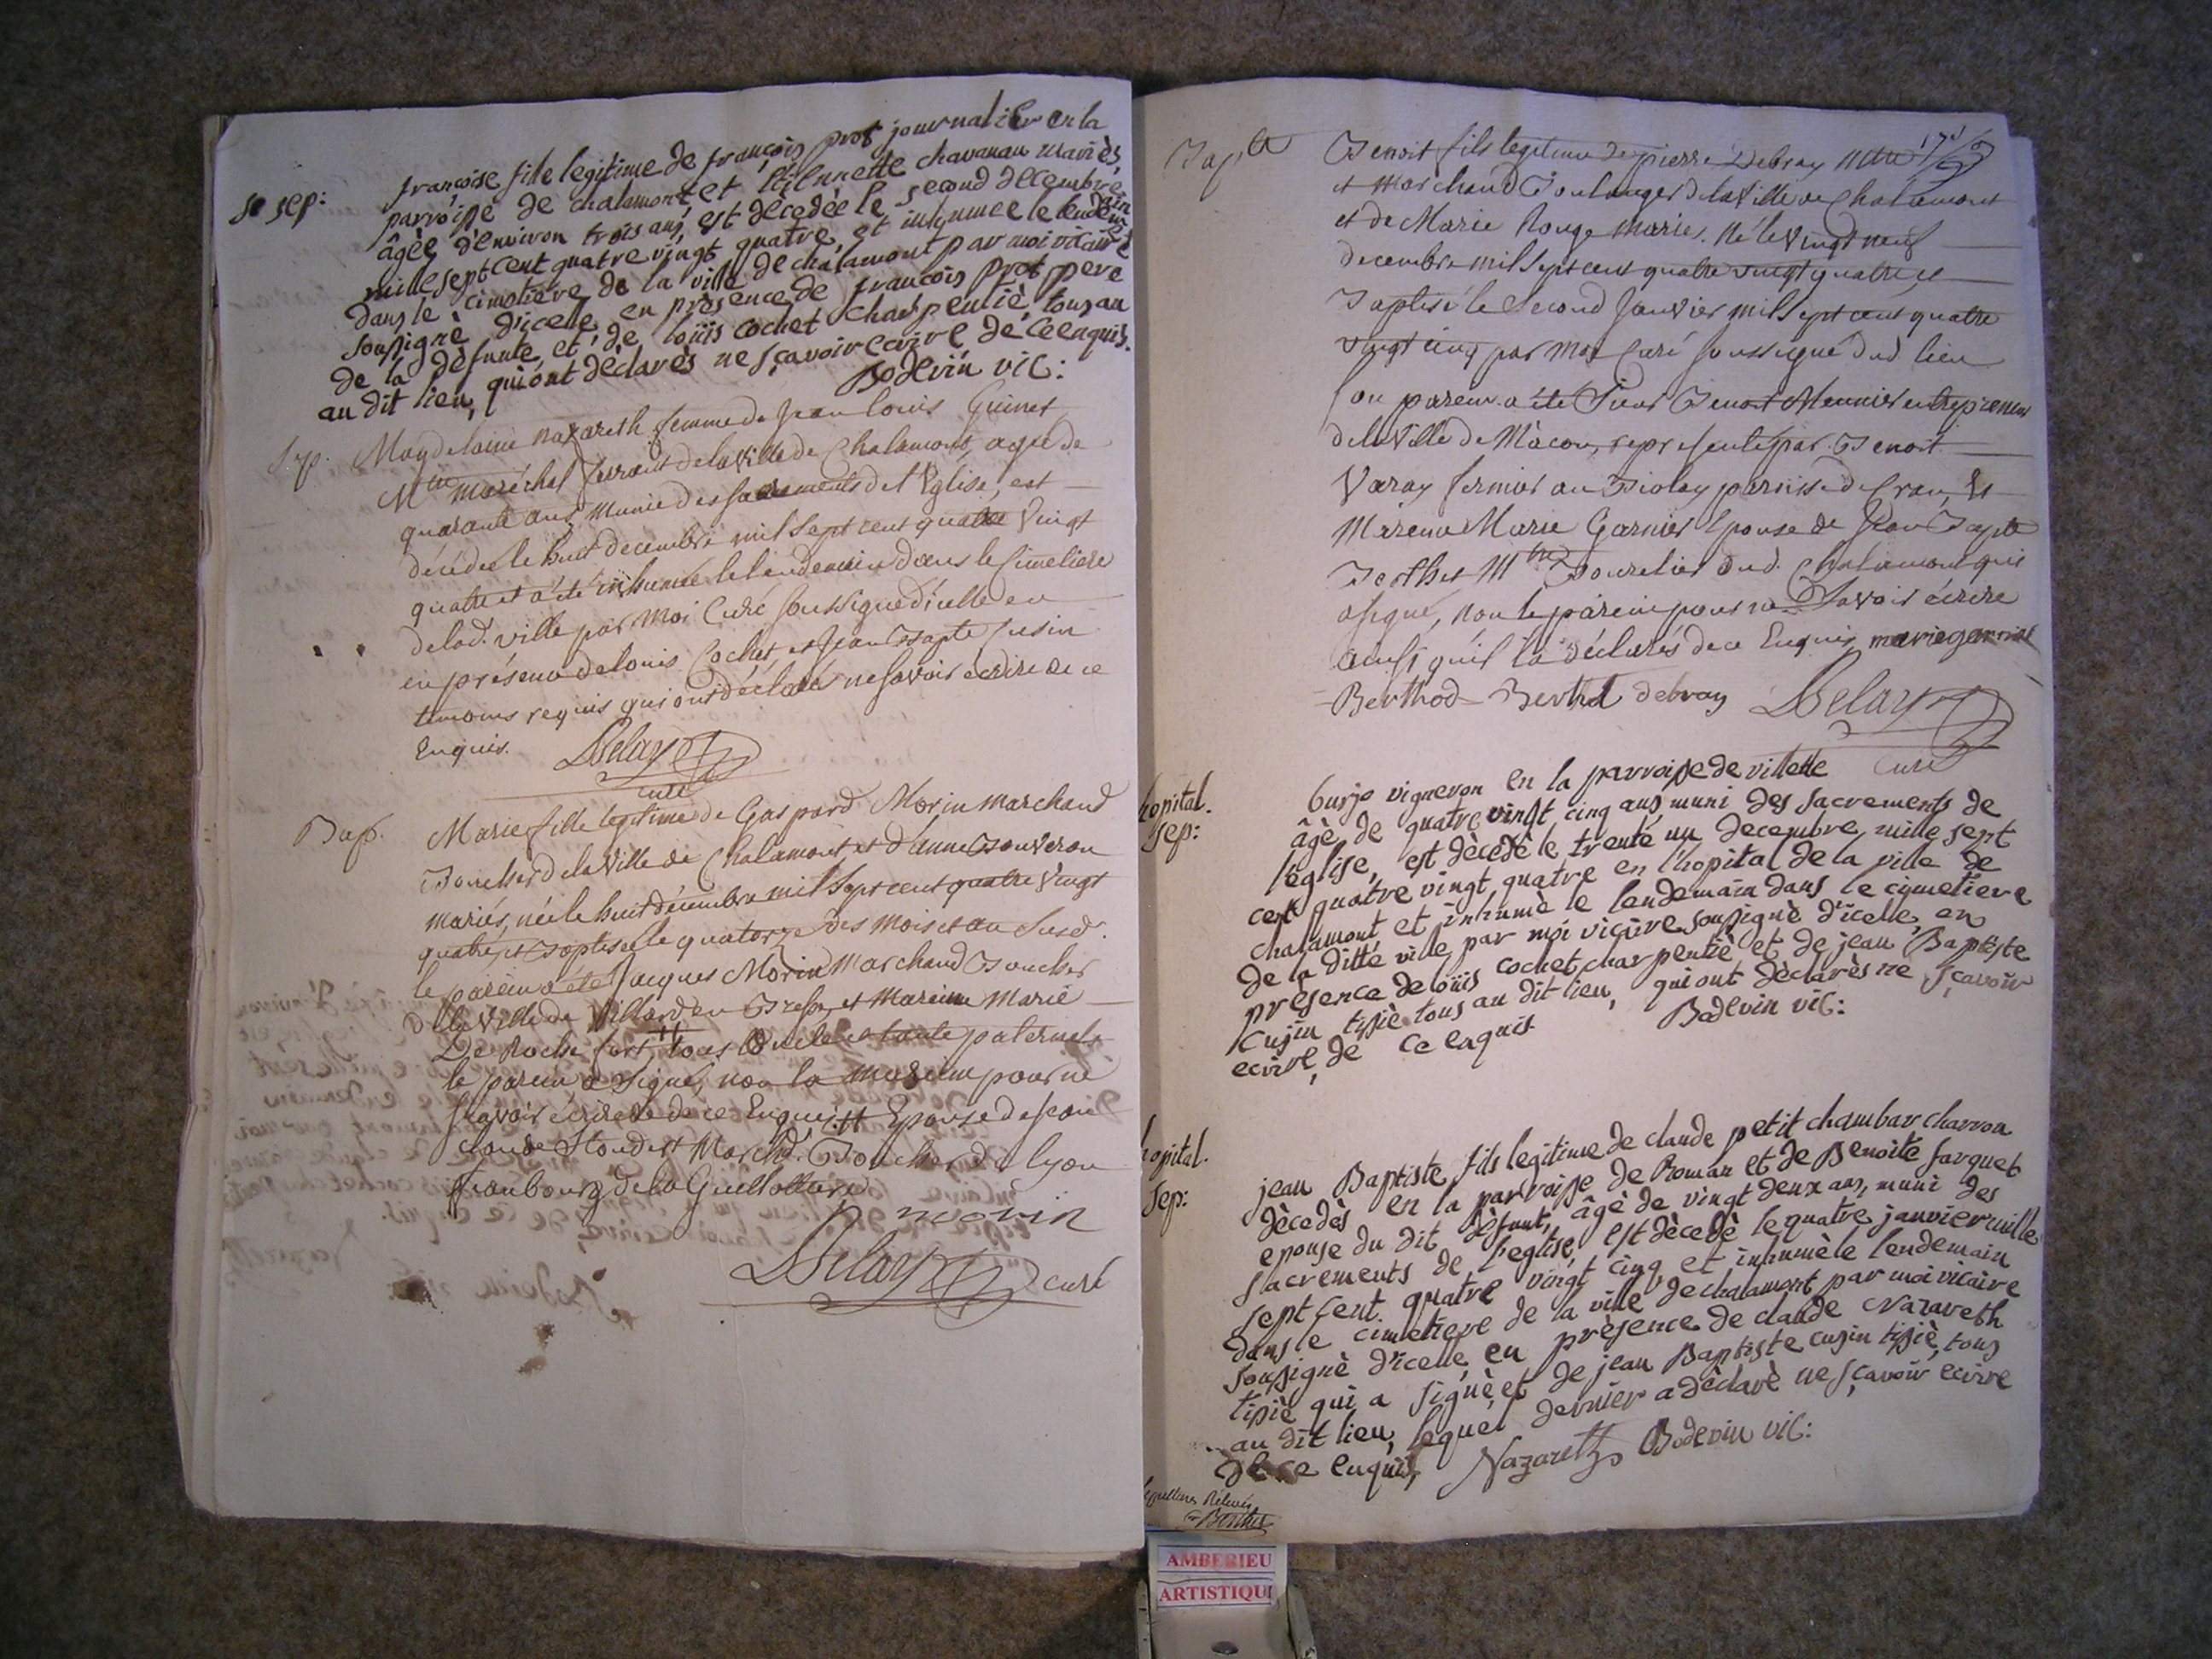 se sep:
françoise fille legitime de françois prost journalier en la
parroisse de chalamont et Etiennette chavanau mariès,
âgèe d'environ trois ans, est dècedèe le second decembre
mille sept cent quatre vingt quatre, et inhumèe le lendemain
dans le cimetiére de la ville de chalamont par moi vicaire
soussignè d'icelle, en prèsence de françois prost pere
de la dèfunte, et de loüis cochet charpentiè, tous au
au dit lieu, qui ont dèclarès ne sçavoir ecrire de ce enquis.
Bodevin vic:
Sep.
Magdelaine nazareth femme de Jean louis Guinet
Mtre maréchal ferrant de la Ville de Chalamont, agée de
quarante ans munie des sacrements de l'Eglise, est
décédée le huit decembre mil Sept cent quatre Vingt
quatre et a été inhumée le lendemain dans le Cimetiere
de lad. ville par moi Curé soussigné d'icelle en
en présence de louis Cochet et Jean Bapte Cusin
temoins requis qui ont déclaré ne savoir écrire de ce
Enquis.
Delay
curé
Bap.
Marie fille legitime de Gaspard Morin marchand
Boucher de la Ville de Chalamont et d'anne Bouveron
mariés, née le huit décembre mil Sept cent quatre Vingt
quatre et Baptisée le quatorze des mois et an Susd.
le parein a été Jacques Morin Marchand Boucher
de la Ville de Villard en Bresse, et Mareine Marie
De Roche fort, # tous Oncle et tante paternels
le parein a Signé, non la mareine pour ne
savoir écrire de ce Enquis. # Epouse de Jean
claude Marchd. Boucher de lyon
fauxbourg de la Guillottiere
morin
Delay curé
Bapte
Benoit fils legitime de pierre Debray Mtre
et Marchand Boulanger de la Ville de Chalamont
et de Marie Rouge mariés. Né le vingt neuf
decembre mil Sept cent quatre vingt quatre et
Baptisé le Second Janvier mil Sept cent quatre
vingt cinq par moi Curé soussigné dud. lieu
Son parein a été Sieur Benoit Meunier entrepreneur
de la Ville de Mâcon, representé par Benoit
Varay fermier au Biolay paroisse de Cran, Et
Mareine Marie Garnier Epouse de Jean Bapte
Berthet Mtre Bourelier dud. Chalamont qui
a signé, non le parein pour ne Savoir écrire
ainsi qu'il l'a déclaré de ce Enquis marie garnier
Berthod Berthet debray Delay
Curé
hopital.
sep:
vigneron en la parroisse de villette
âgè de quatre vingt cinq ans, muni des sacrements de
l'eglise, est dècedè le trente un decembre mille sept
cent quatre vingt quatre en l'hopital de la ville de
chalamont et inhumè le lendemain dans le cimetiere
de la ditte ville par moi vicaire soussignè d'icelle, en
prèsence de loüis cochet charpentiè et de jean Baptiste
Cusin tissiè tous au dit lieu, qui ont dèclarès ne sçavoir
ecrire, de ce enquis
Bodevin vic:
hopital.
sep:
jean Baptiste fils legitime de claude petit chambar charron
dècedès en la parroisse de Roman et de Benoite farguet
epouse du dit dèfunt, âgè de vingt deux ans, muni des
sacrements de l'eglise, est dècedè le quatre janvier mille
sept cent quatre vingt cinq et inhumè le lendemain
dans le cimetiere de la ville de chalamont par moi vicaire
soussignè d'icelle, en prèsence de claude Nazareth
tissiè qui a signè, et de jean Baptiste cusin tissiè, tous
au dit lieu, lequel dernier a dèclarè ne sçavoir ecrire
de ce enquis,
Nazareth Bodevin vic:
AMBERIEU
ARTISTIQU